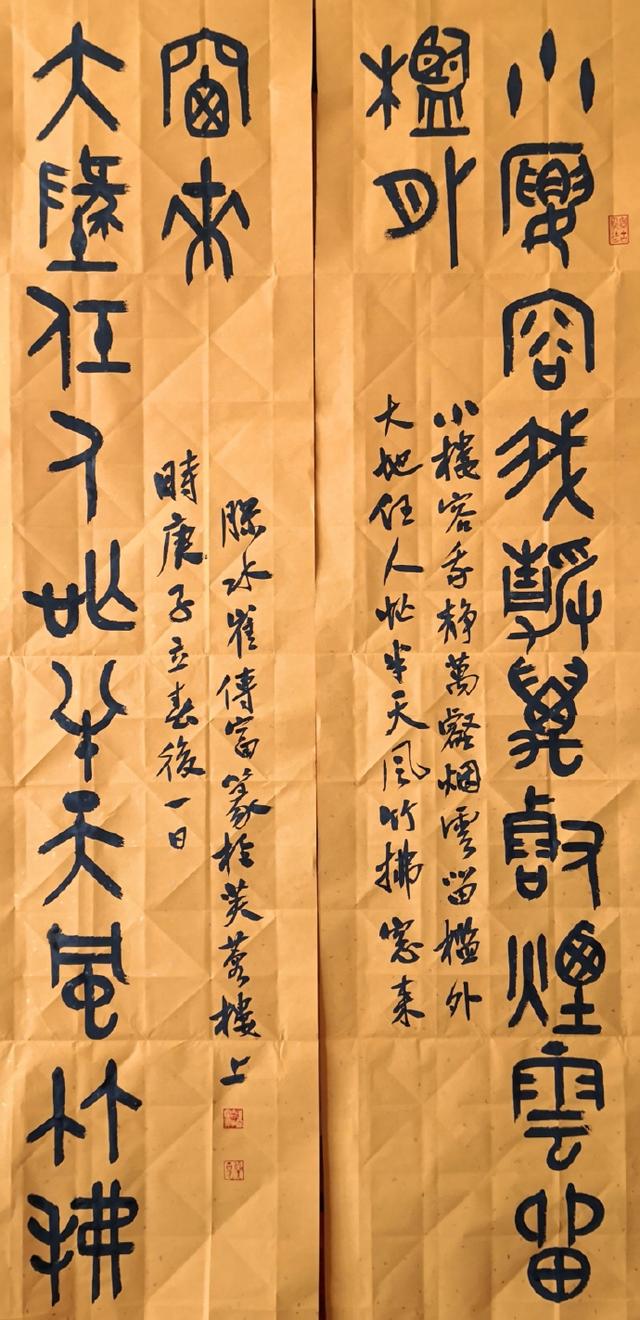 小樓容我靜萬壑煙雲留
檻外
小樓容我静萬壑烟雲留檻外
大地任人忙半天風竹拂窓来
大地任人忙半天風竹拂
窗來
滕水崔傳富篆於芙蓉樓上
時庚子立春後一日